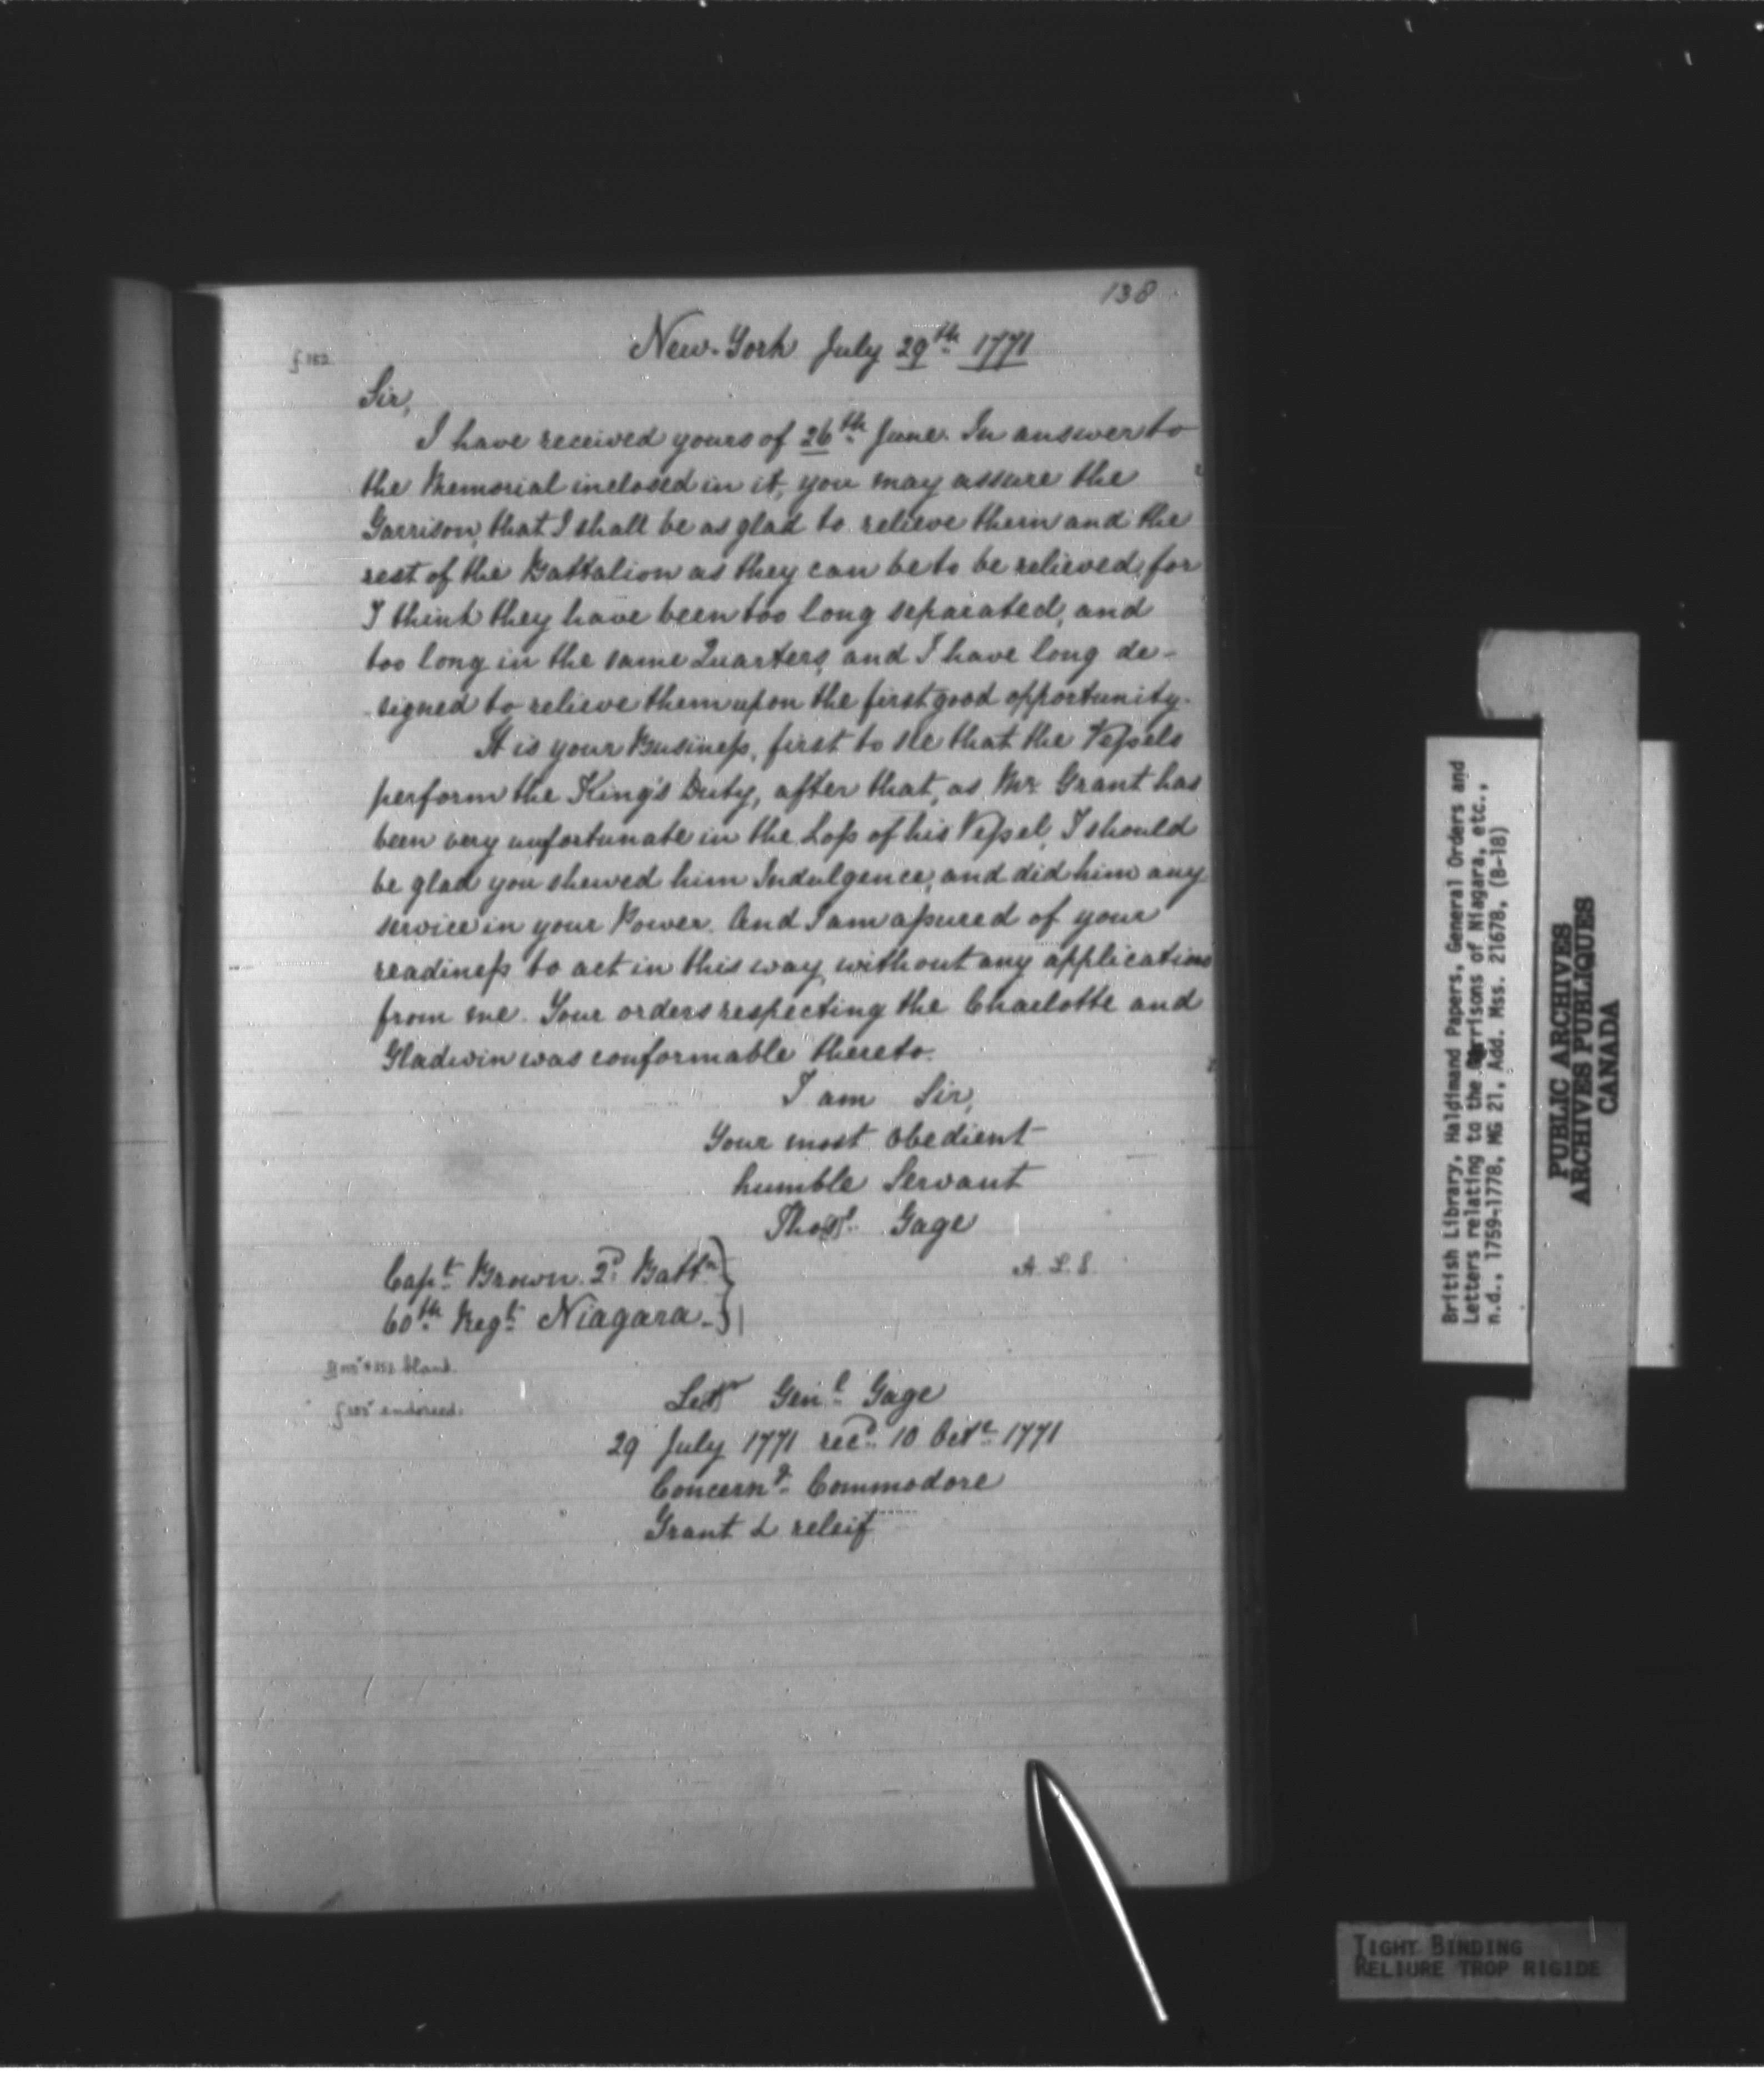 138
New-York July 29th 1771
Sir,
I have received yours of 26th June. In answer to
the Memorial inclosed in it, you may assure the
Garrison, that I shall be as glad to relieve them and the
rest of the Battalion as they can be to be relieved, for
I think they have been too long separated, and
too long in the same Quarters, and I have long de-
signed to relieve them upon the first good opportunity.
It is your Business, first to see that the Vessels
perform the King's Duty, after that, as Mr. Grant has
been very unfortunate in the Loss of his Vessel, I should
be glad you shewed him Indulgence, and did him any
service in your Power. And I am assured of your
readiness to act in this way, without any application
from me. Your orders respecting the Charlotte and
Gladwin was conformable thereto.
I am Sir,
Your most Obedient
humble Servant
Thos. Gage
A. L. S.
Capt. Brown 2d. Battn.
60th Regt. Niagara.
blank.
endorsed.
Lettr Genl. Gage
29 July 1771 recd. 10 Octr. 1771
Concerng. Commodore
Grant & releif
British Library, Haldimand Papers, General Orders and
Letters relating to the Garrisons of Niagara, etc.,
n.d., 1759-1778, MG 21, Add. Mss. 21678, (B-18)
PUBLIC ARCHIVES
ARCHIVES PUBLIQUES
CANADA
TIGHT BINDING
RELIURE TROP RIGIDE